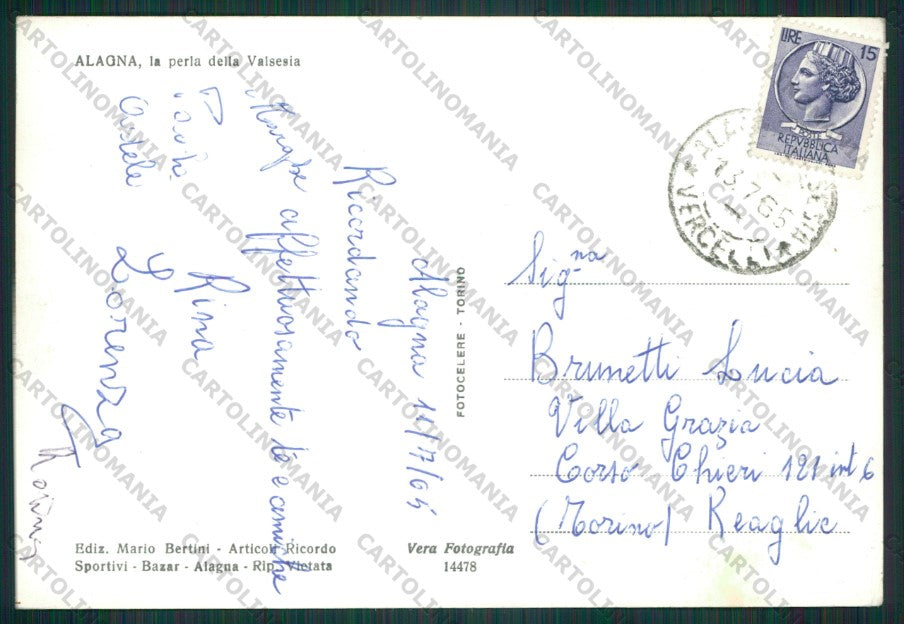 ALAGNA, la perla della Valsesia
Alagna 11/7/65
Ricordando
affettuosamente le amiche
Rina
Lorenza
Ediz. Mario Bertini - Articoli Ricordo
Sportivi - Bazar - Alagna - Rip. Vietata
Vera Fotografia
14478
FOTOCELERE - TORINO
LIRE 15
POSTE
REPVBBLICA
ITALIANA
13.7.65
VERCELLI
Sig.na
Brunetti Lucia
Villa Grazia
Corso Chieri 121 int 6
(Torino) Reaglie
CARTOLINOMANIA